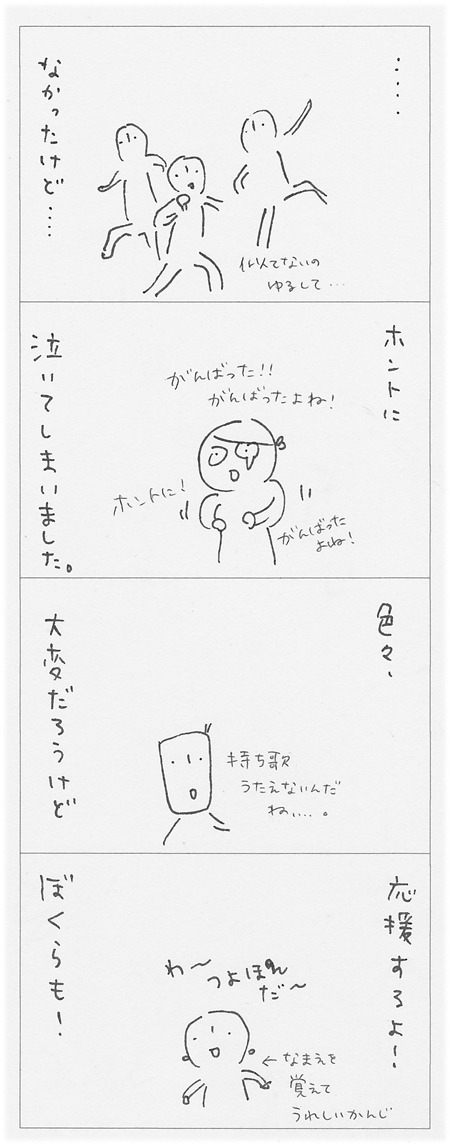 ・・・・
なかったけど・・・・
似てないの
ゆるして・・・
ホントに
泣いてしまいました。
がんばった!!
がんばったよね!
ホントに!
がんばった
よね!
色々、
大変だろうけど
持ち歌
うたえないんだ
ねぃ...。
応援するよ!
ぼくらも!
わ〜
つよぽん
だ〜
←なまえを
覚えて
うれしいかんじ